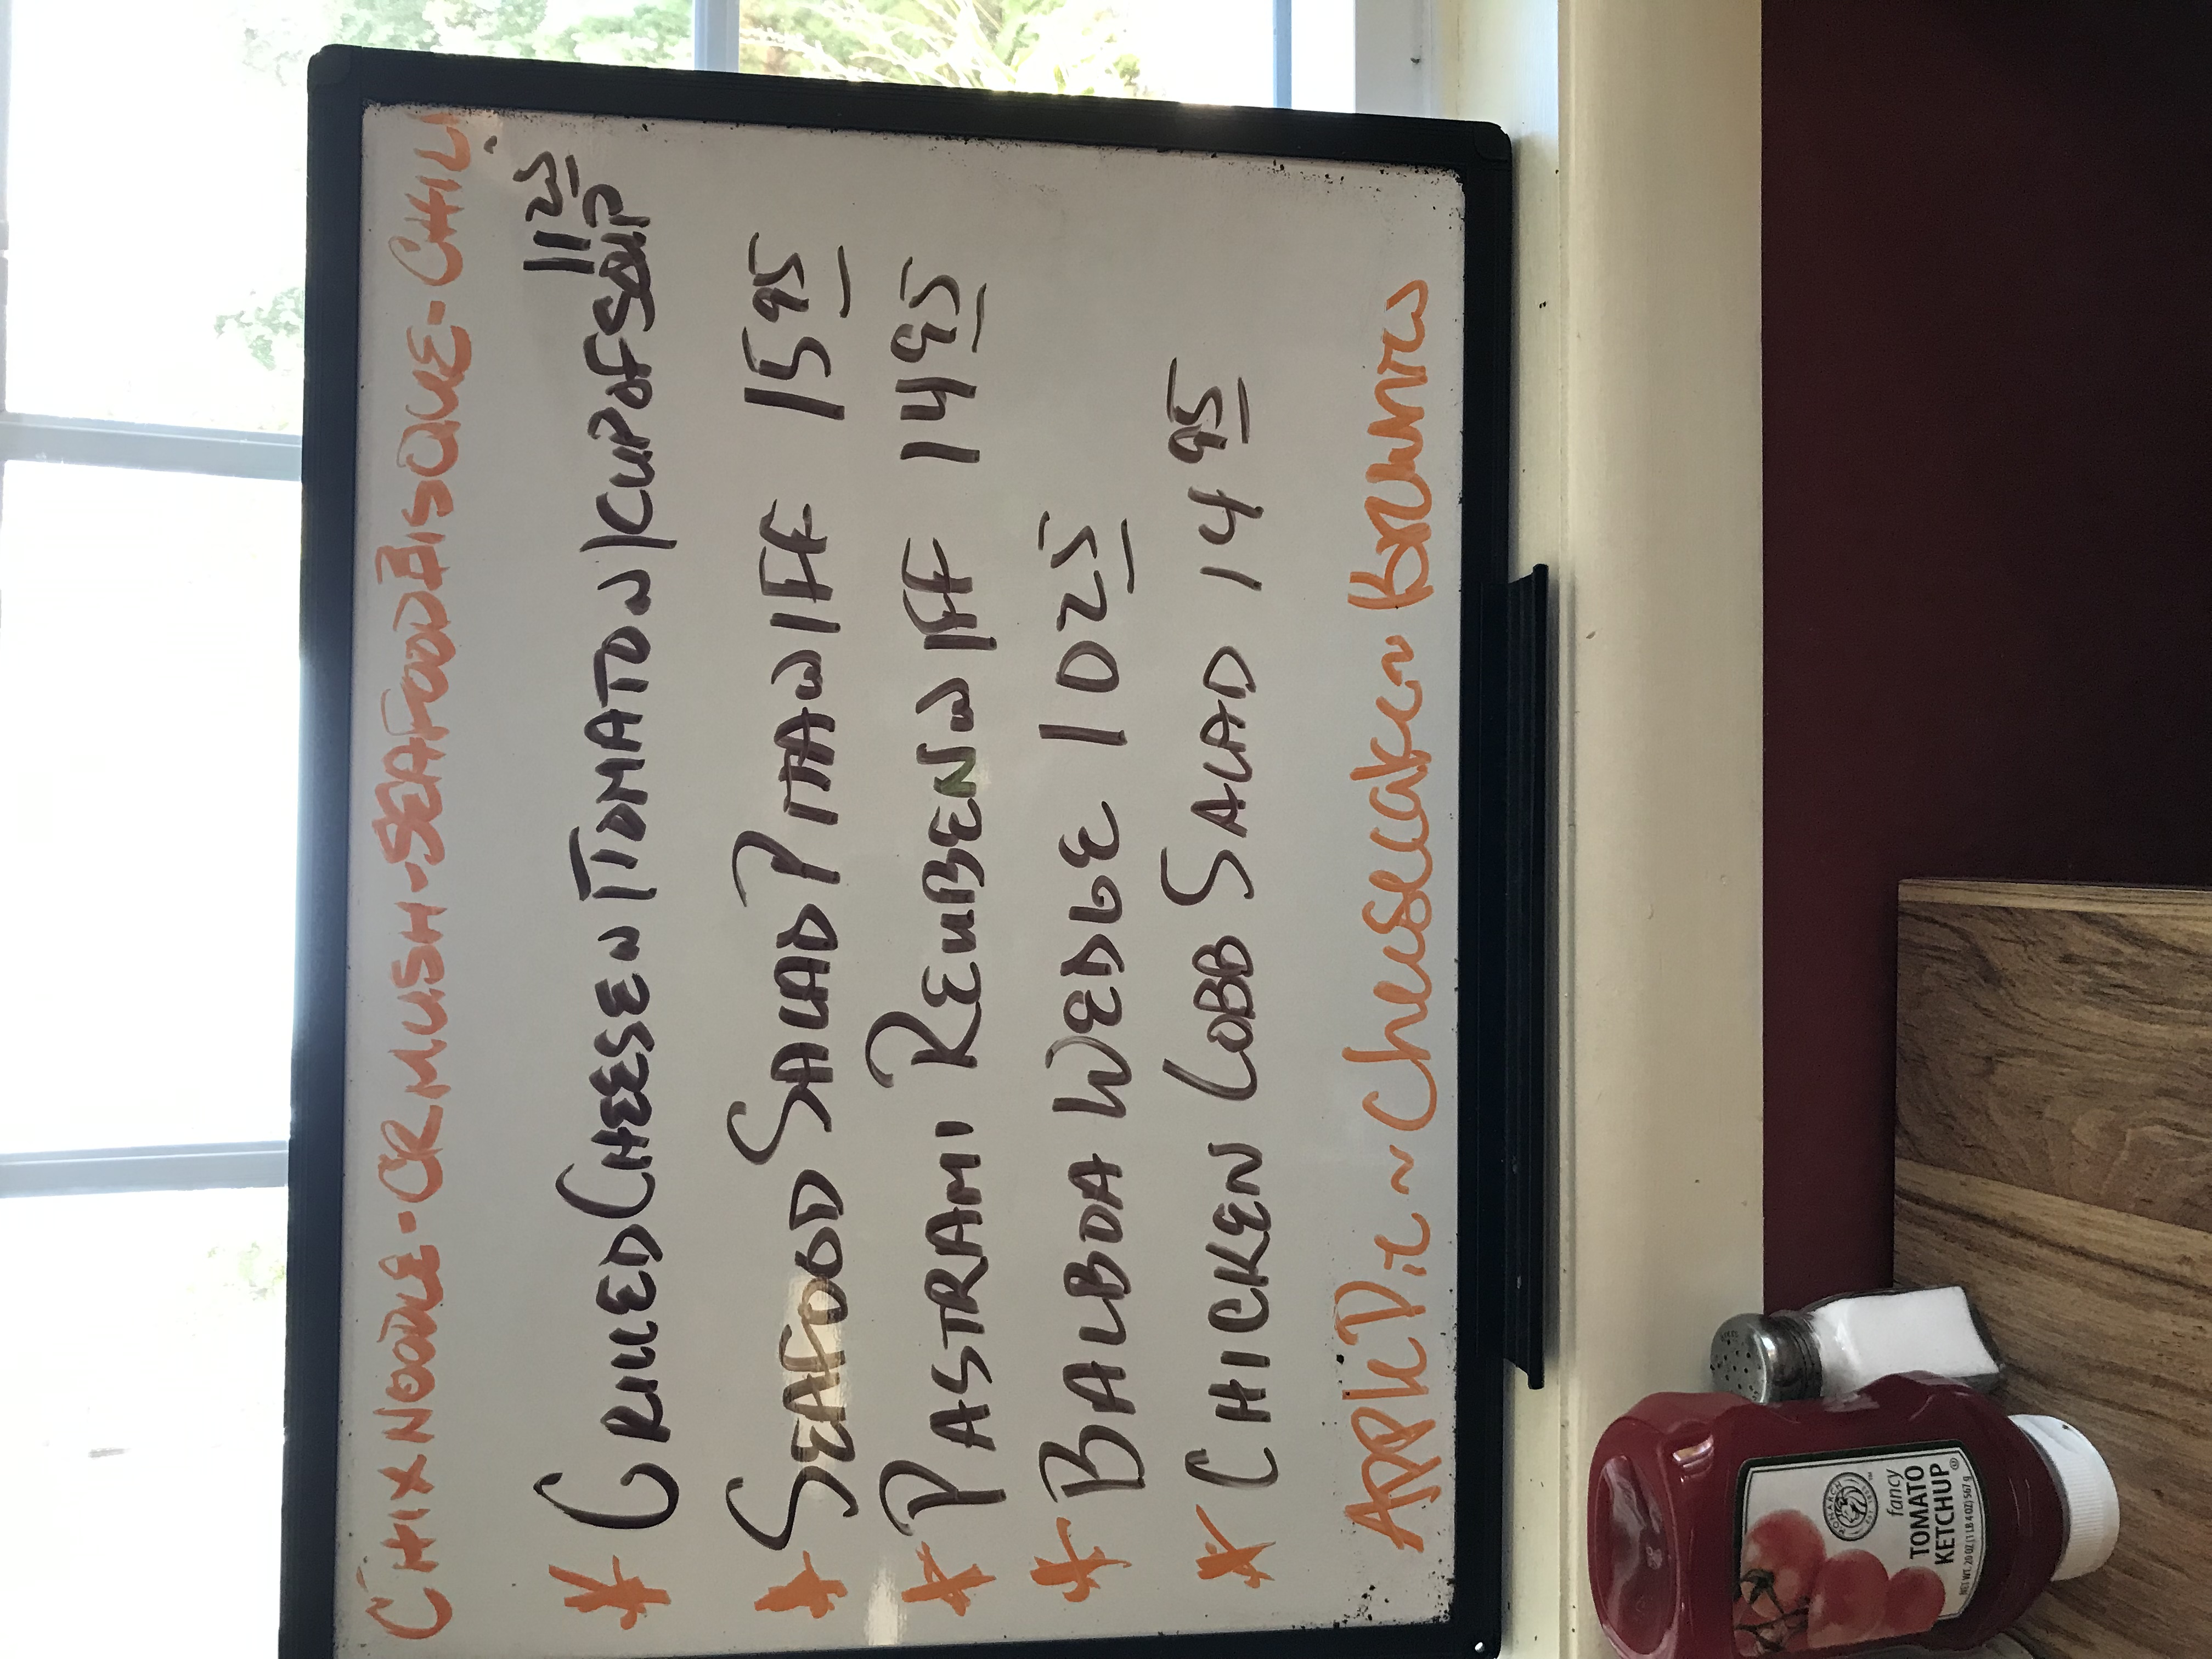 CHIX NOODLE - CR MUSH - SEAFOOD BISQUE - CHILI
* GRILLED CHEESE W TOMATO W/CUP OF SOUP 11 25
* SEAFOOD SALAD PITA W/FF 15 95
* PASTRAMI REUBEN W/FF 14 95
* BALBOA WEDGE 10 25
* CHICKEN COBB SALAD 14 95
Apple Pie ~ Cheesecake ~ Brownies
MONARCH
fancy
TOMATO
KETCHUP
NET WT. 20 OZ (1 LB 4 OZ) 567 g